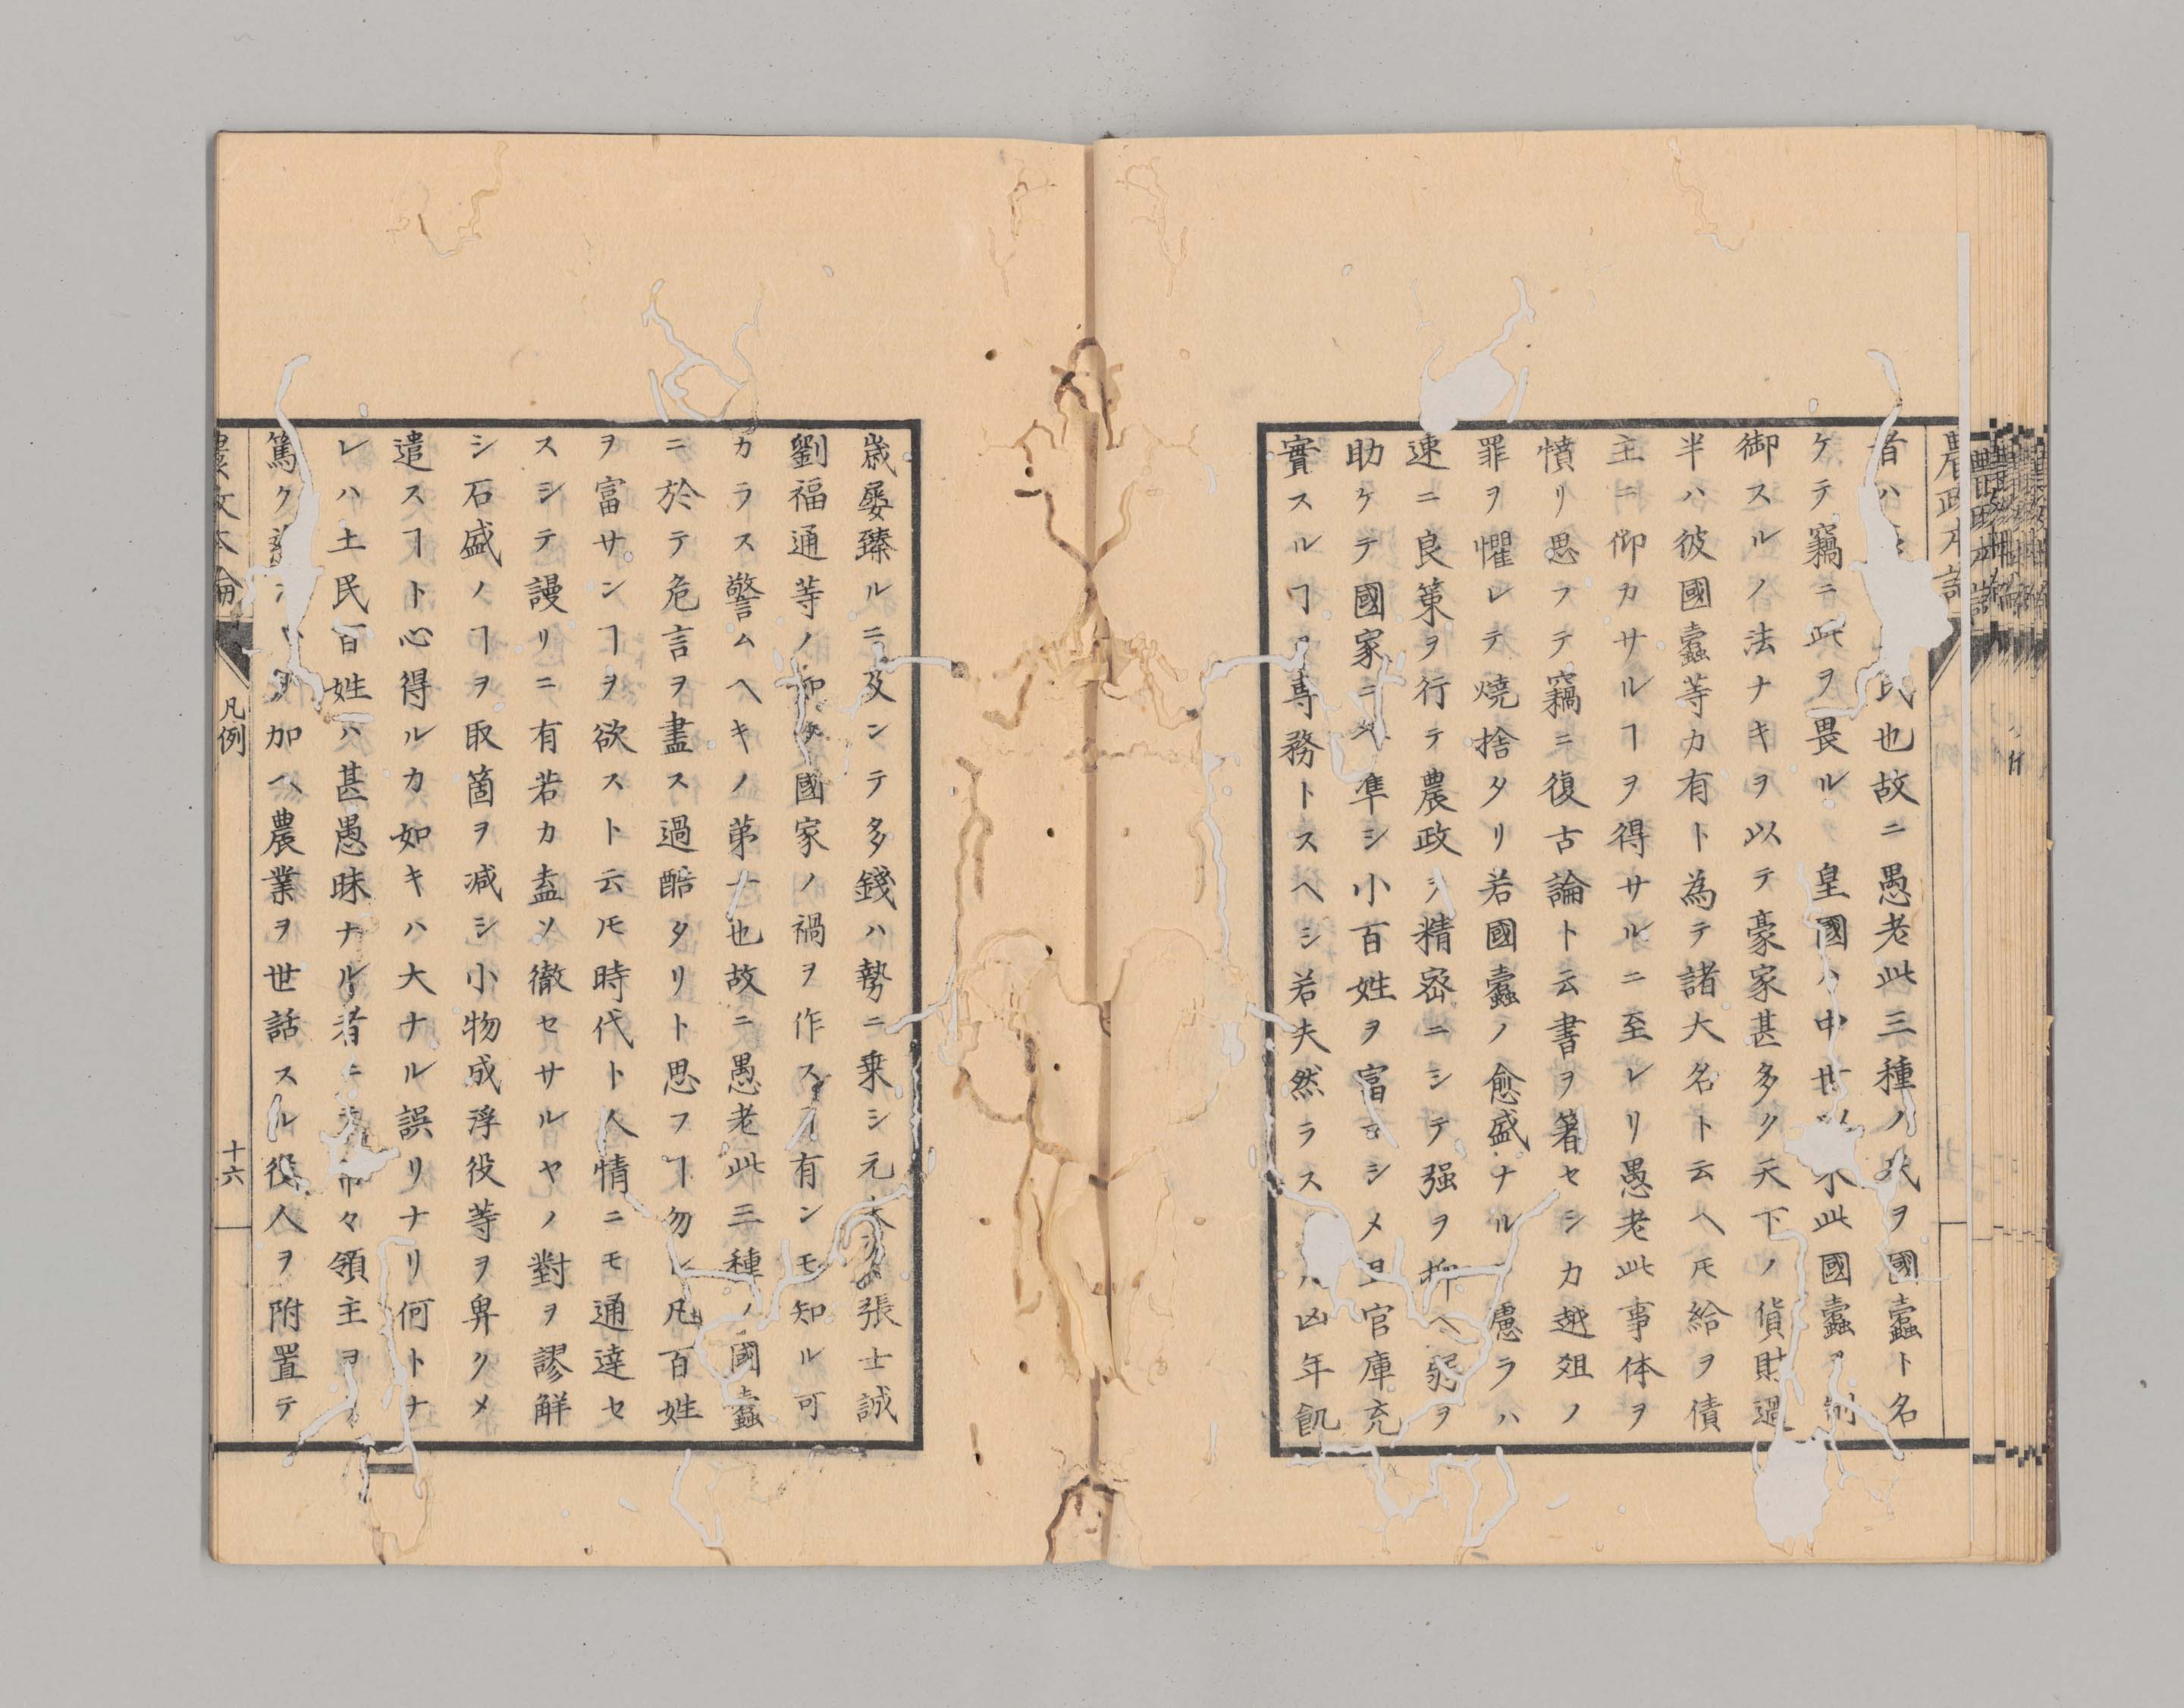 首ハ 氏也故ニ愚老此三種ノ氏ヲ國蠹ト名
ケテ竊ニ此ヲ畏ル 皇國ハ中世 此國蠹ヲ制
御スルノ法ナキヲ以テ豪家甚多ク天下ノ貨財過
半ハ彼國蠹等カ有ト為テ諸大名ト云ヘ𪜈給ヲ債
主ニ仰カサルヿヲ得サルニ至レリ愚老此事体ヲ
憤リ思フテ竊ニ復古論ト云書ヲ著セシカ越俎ノ
罪ヲ懼レテ燒捨タリ若國蠹ノ愈盛ナル 慮ラハ
速ニ良策ヲ行テ農政ヲ精宻ニシテ强ヲ抑ヘ弱ヲ
助ケテ國家ニ 準シ小百姓ヲ富マシメ且官庫充
實スルヿヲ專務トスヘシ若夫然ラス 凶年飢
歳屡臻ルニ及ンテ多錢ハ勢ニ乗シ元末 張士誠
劉福通等ノ如ク國家ノ禍ヲ作スヿ有ンモ知ル可
カラス警ムヘキノ第一也故ニ愚老此三種ノ國蠹
ニ於テ危言ヲ盡ス過酷タリト思フヿ勿レ凡百姓
ヲ富サンヿヲ欲スト云𪜈時代ト人情ニモ通達セ
スシテ謾リニ有若カ盍ソ徹セサルヤノ對ヲ謬解
シ石盛ノヿヲ取箇ヲ减シ小物成浮役等ヲ舁クメ
遣スヿト心得ルカ如キハ大ナル誤リナリ何トナ
レハ土民百姓ハ甚愚昧ナル者ニ 々領主ヨリ
篤ク ヲ加ヘ農業ヲ世話スル役人ヲ附置テ
農政本論
凡例
十六